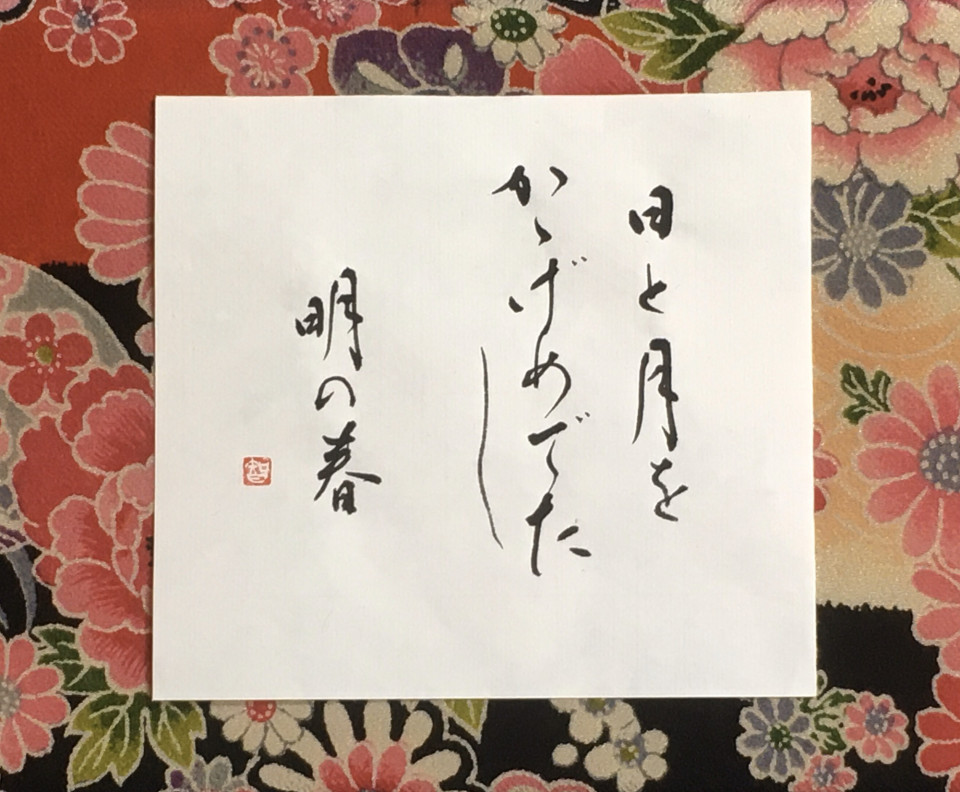 日と月を
かゝげめでたし
明の春
智